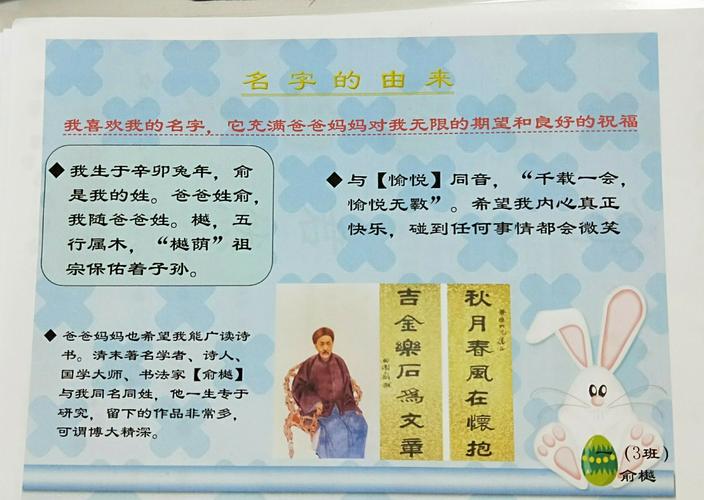 名字的由来
我喜欢我的名字，它充满爸爸妈妈对我无限的期望和良好的祝福
◆我生于辛卯兔年，俞
是我的姓。爸爸姓俞，
我随爸爸姓。樾，五
行属木，“樾荫”祖
宗保佑着子孙。
◆与【愉悦】同音，“千载一会，
愉悦无斁”。希望我内心真正
快乐，碰到任何事情都会微笑
◆爸爸妈妈也希望我能广读诗
书。清末著名学者、诗人、
国学大师、书法家【俞樾】
与我同名同姓，他一生专于
研究，留下的作品非常多，
可谓博大精深。
秋月春風在懷抱
吉金樂石爲文章
一（3班）
俞樾